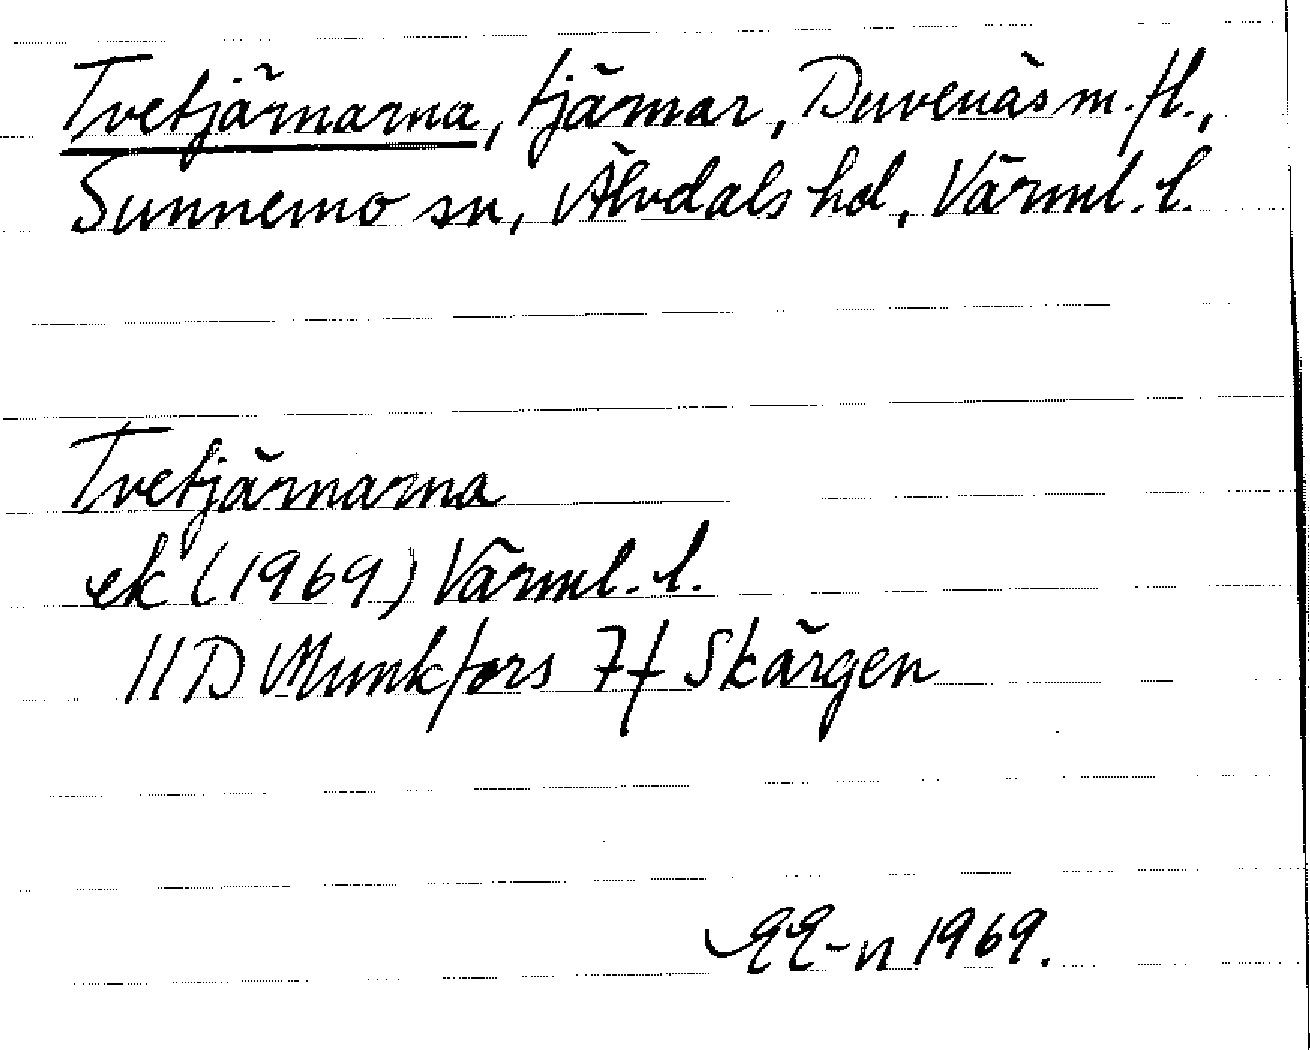 Tvetjärnarna, tjärnar, Duvenäs m.fl.,
Sunnemo sn, Älvdals hd, Värml. l.
Tvetjärnarna
ek (1969) Värml. l.
11D Munkfors 7f Skärgen
EE-n 1969.